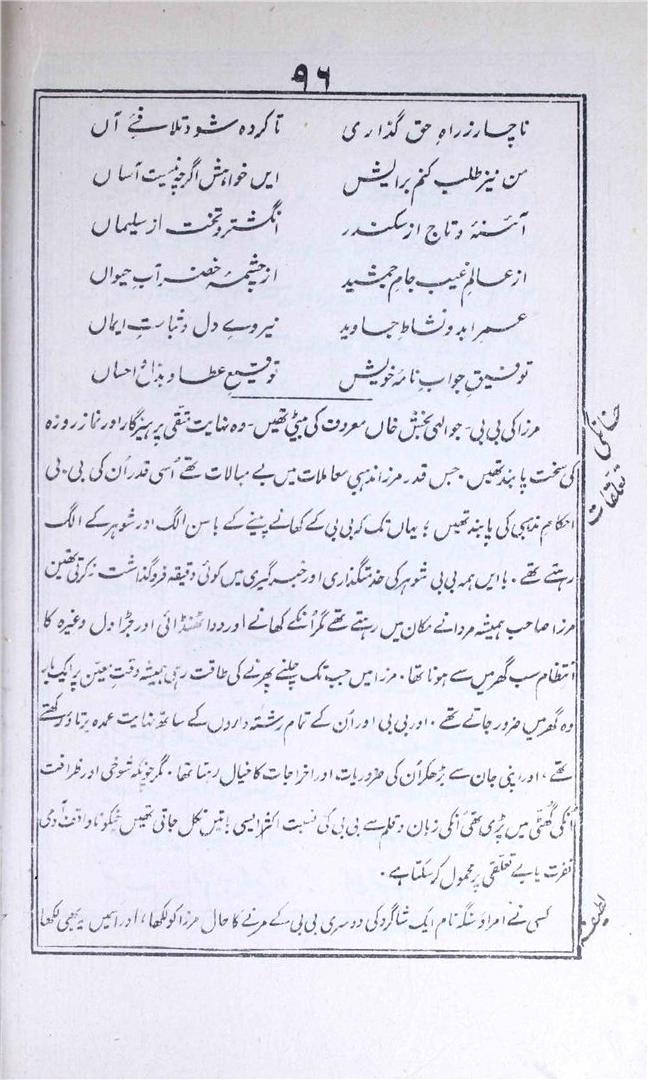 ۹۶
ناچار ز راہِ حق گذاری تا کردہ شود تلافیِٔ آں
من نیز طلب کنم برایش ایں خواہش اگرچہ نیست آساں
آئنہ و تاج از سکندر انگشتر و تخت از سلیماں
از عالمِ غیب جامِ جمشید از چشمۂ خضر آبِ حیواں
عمرِ ابد و نشاطِ جاوید نیروے دل و ثباتِ ایماں
توفیقِ جوابِ نامۂ خویش توقیعِ عطا و بذل و احساں
خانگی تعلقات
مرزا کی بی بی۔ جو الٰہی بخش خاں معروف کی بیٹی تھیں۔ وہ نہایت متقی پرہیزگار اور نماز روزہ
کی سخت پابند تھیں۔ جس قدر مرزا مذہبی معاملات میں بے مبالات تھے اُسی قدر اُن کی بی بی
احکامِ مذہبی کی پابند تھیں؛ یہاں تک کہ بی بی کے کھانے پینے کے باسن الگ اور شوہر کے الگ
رہتے تھے۔ باایں ہمہ بی بی شوہر کی خدمتگذاری اور خبر گیری میں کوئی دقیقہ فروگذاشت نہ کرتی تھیں
مرزا صاحب ہمیشہ مردانے مکان میں رہتے تھے مگر اُنکے کھانے اور دوا ٹھنڈائی اور جڑاول وغیرہ کا
انتظام سب گھر میں سے ہوتا تھا۔ مرزا میں جب تک چلنے پھرنے کی طاقت رہی ہمیشہ وقتِ معین پر ایک بار
وہ گھر میں ضرور جاتے تھے۔ اور بی بی اور اُن کے تمام رشتہ داروں کے ساتھ نہایت عمدہ برتاؤ رکھتے
تھے، اور اپنی جان سے بڑھکر اُن کی ضروریات، اور اخراجات کا خیال رہتا تھا۔ مگر چونکہ شوخی اور ظرافت
اُنکی گھٹی میں پڑی تھی اُنکی زبان و قلم سے بی بی کی نسبت اکثر ایسی باتیں نکل جاتی تھیں جنکو ناواقف آدمی
نفرت یا بے تعلقی پر محمول کر سکتا ہے۔
لطیفہ
کسی نے امراؤ سنگہ نام ایک شاگرد کی دوسری بی بی کے مرنے کا حال مرزا کو لکھا، اور اسمیں یہ بھی لکھا